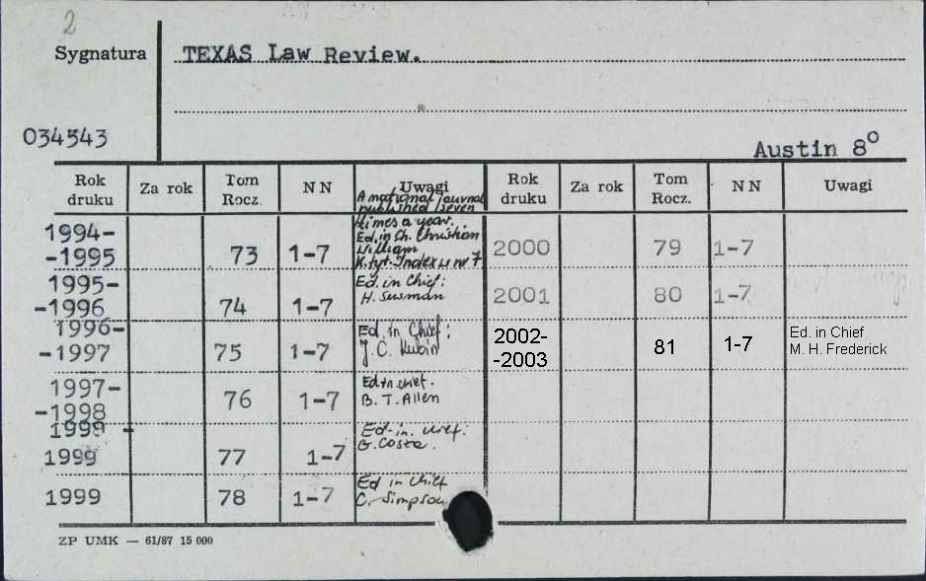 2
Sygnatura
TEXAS Law Review.
034543
Austin 8°
Rok druku Za rok Tom Rocz. NN Uwagi Rok druku Za rok Tom Rocz. NN Uwagi
A national journal
published seven
times a year.
1994-
-1995 73 1-7 Ed. in Ch. Christian
William
K.tyt. Index w nr 7
2000 79 1-7
1995-
-1996 74 1-7 Ed. in Chief:
H. Susman
2001 80 1-7
1996-
-1997 75 1-7 Ed. in Chief:
J. C. Rubin
2002-
-2003 81 1-7 Ed. in Chief
M. H. Frederick
1997-
-1998 76 1-7 Ed in chief.
B. T. Allen
1998 -
1999 77 1-7 Ed. in
G. Costa.
1999 78 1-7 Ed in Chief
C. Simpson
ZP UMK — 61/87 15 000